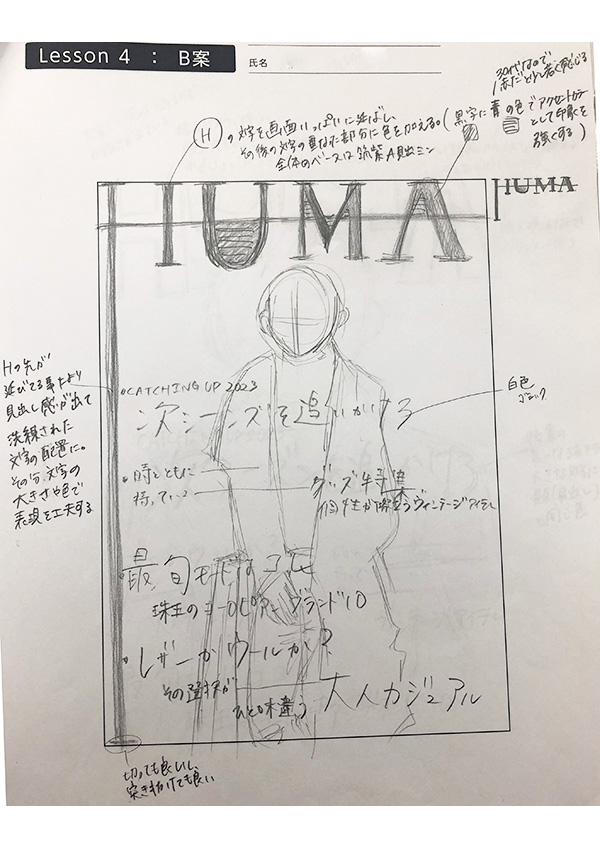 Lesson 4 : B案
氏名
30代なので
赤だと少し若く感じる
Hの文字を画面いっぱいに延ばし、
その後の文字の重なた部分に色を加える。(黒字に青の色でアクセントカラー
として印象を
強くする)
全体のベースは筑紫A見出ミン
HUMA
HUMA
Hの先が
延びてる事により
見出し感が出て
洗練された
文字の配置に。
その分、文字の
大きさや色で
表現を工夫する
・CATCHING UP 2023
次シーンズを追いかける
白色
ゴシック
・時とともに
持っていこ
グッズ特集
個性が際立つヴィンテージアイテム
・最旬モードはコレ
珠玉のヨーロピアンブランド10
・レザーかウールか?
その選択が
ひと味違う
大人カジュアル
切っても良いし、
突き抜けても良い